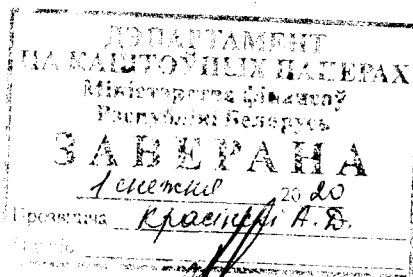 ДЭПАРТАМЕНТ
ПА КАШТОЎНЫХ ПАПЕРАХ
Міністэрства фінансаў
Рэспублікі Беларусь
ЗАВЕРАНА
1 снежня 2020
Прозвішча А. Д.